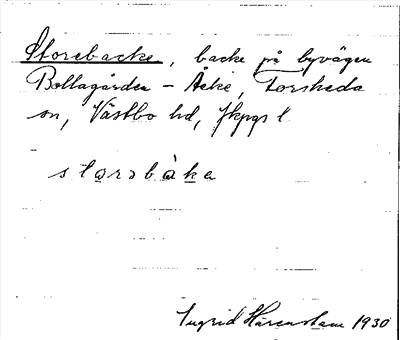 Storebacke, backe på byvägen
Bollagården - Åeke, Forsheda
sn, Västbo hd, Jkpgs l
storəbàkə
Ingrid Hårenstam 1930